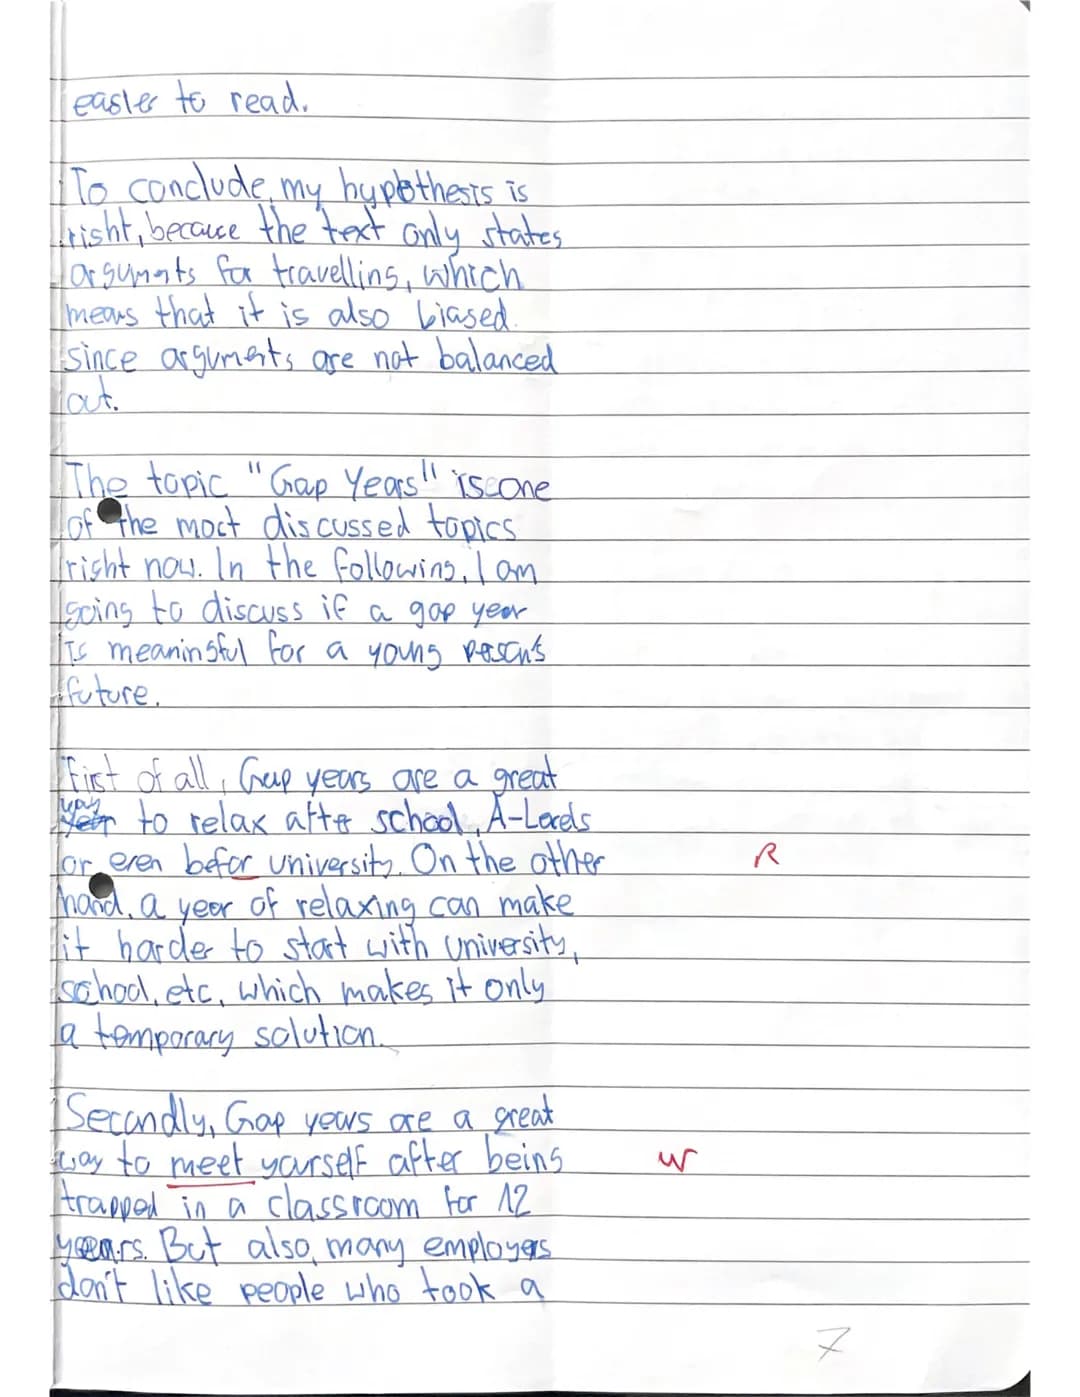 easier to read.
To conclude, my hypothesis is
right, because the text only states
arguments for travelling, which
means that it is also biased
since arguments are not balanced
out.
The topic "Gap Years" is one
of the most discussed topics
right now. In the following, I am
going to discuss if a gap year
is meaningful for a young person's
future.
First of all, Gap years are a great
way
year to relax after school, A-Levels
or even befor university. On the other R
hand, a year of relaxing can make
it harder to start with university,
school, etc, which makes it only
a temporary solution.
Secondly, Gap years are a great
way to meet yourself after being W
trapped in a classroom for 12
years. But also, many employers
don't like people who took a
7